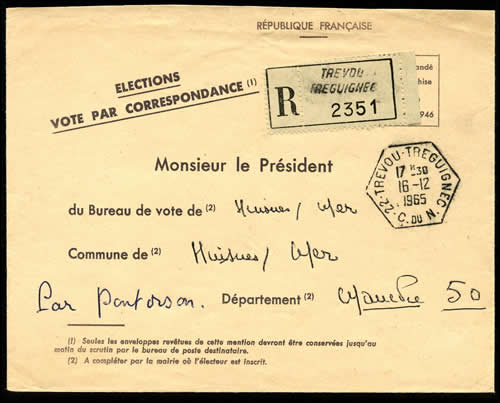 RÉPUBLIQUE FRANÇAISE
ELECTIONS
VOTE PAR CORRESPONDANCE (1)
TREVOU
TREGUIGNEC
R 2351
andé
hise
946
22 - TREVOU-TREGUIGNEC
17 H 30
16-12
1965
C. DU N.
Monsieur le Président
du Bureau de vote de (2) Huisnes / Mer
Commune de (2) Huisnes / Mer
Par Pontorson. Département (2) Manche 50
(1) Seules les enveloppes revêtues de cette mention devront être conservées jusqu'au
matin du scrutin par le bureau de poste destinataire.
(2) A compléter par la mairie où l'électeur est inscrit.